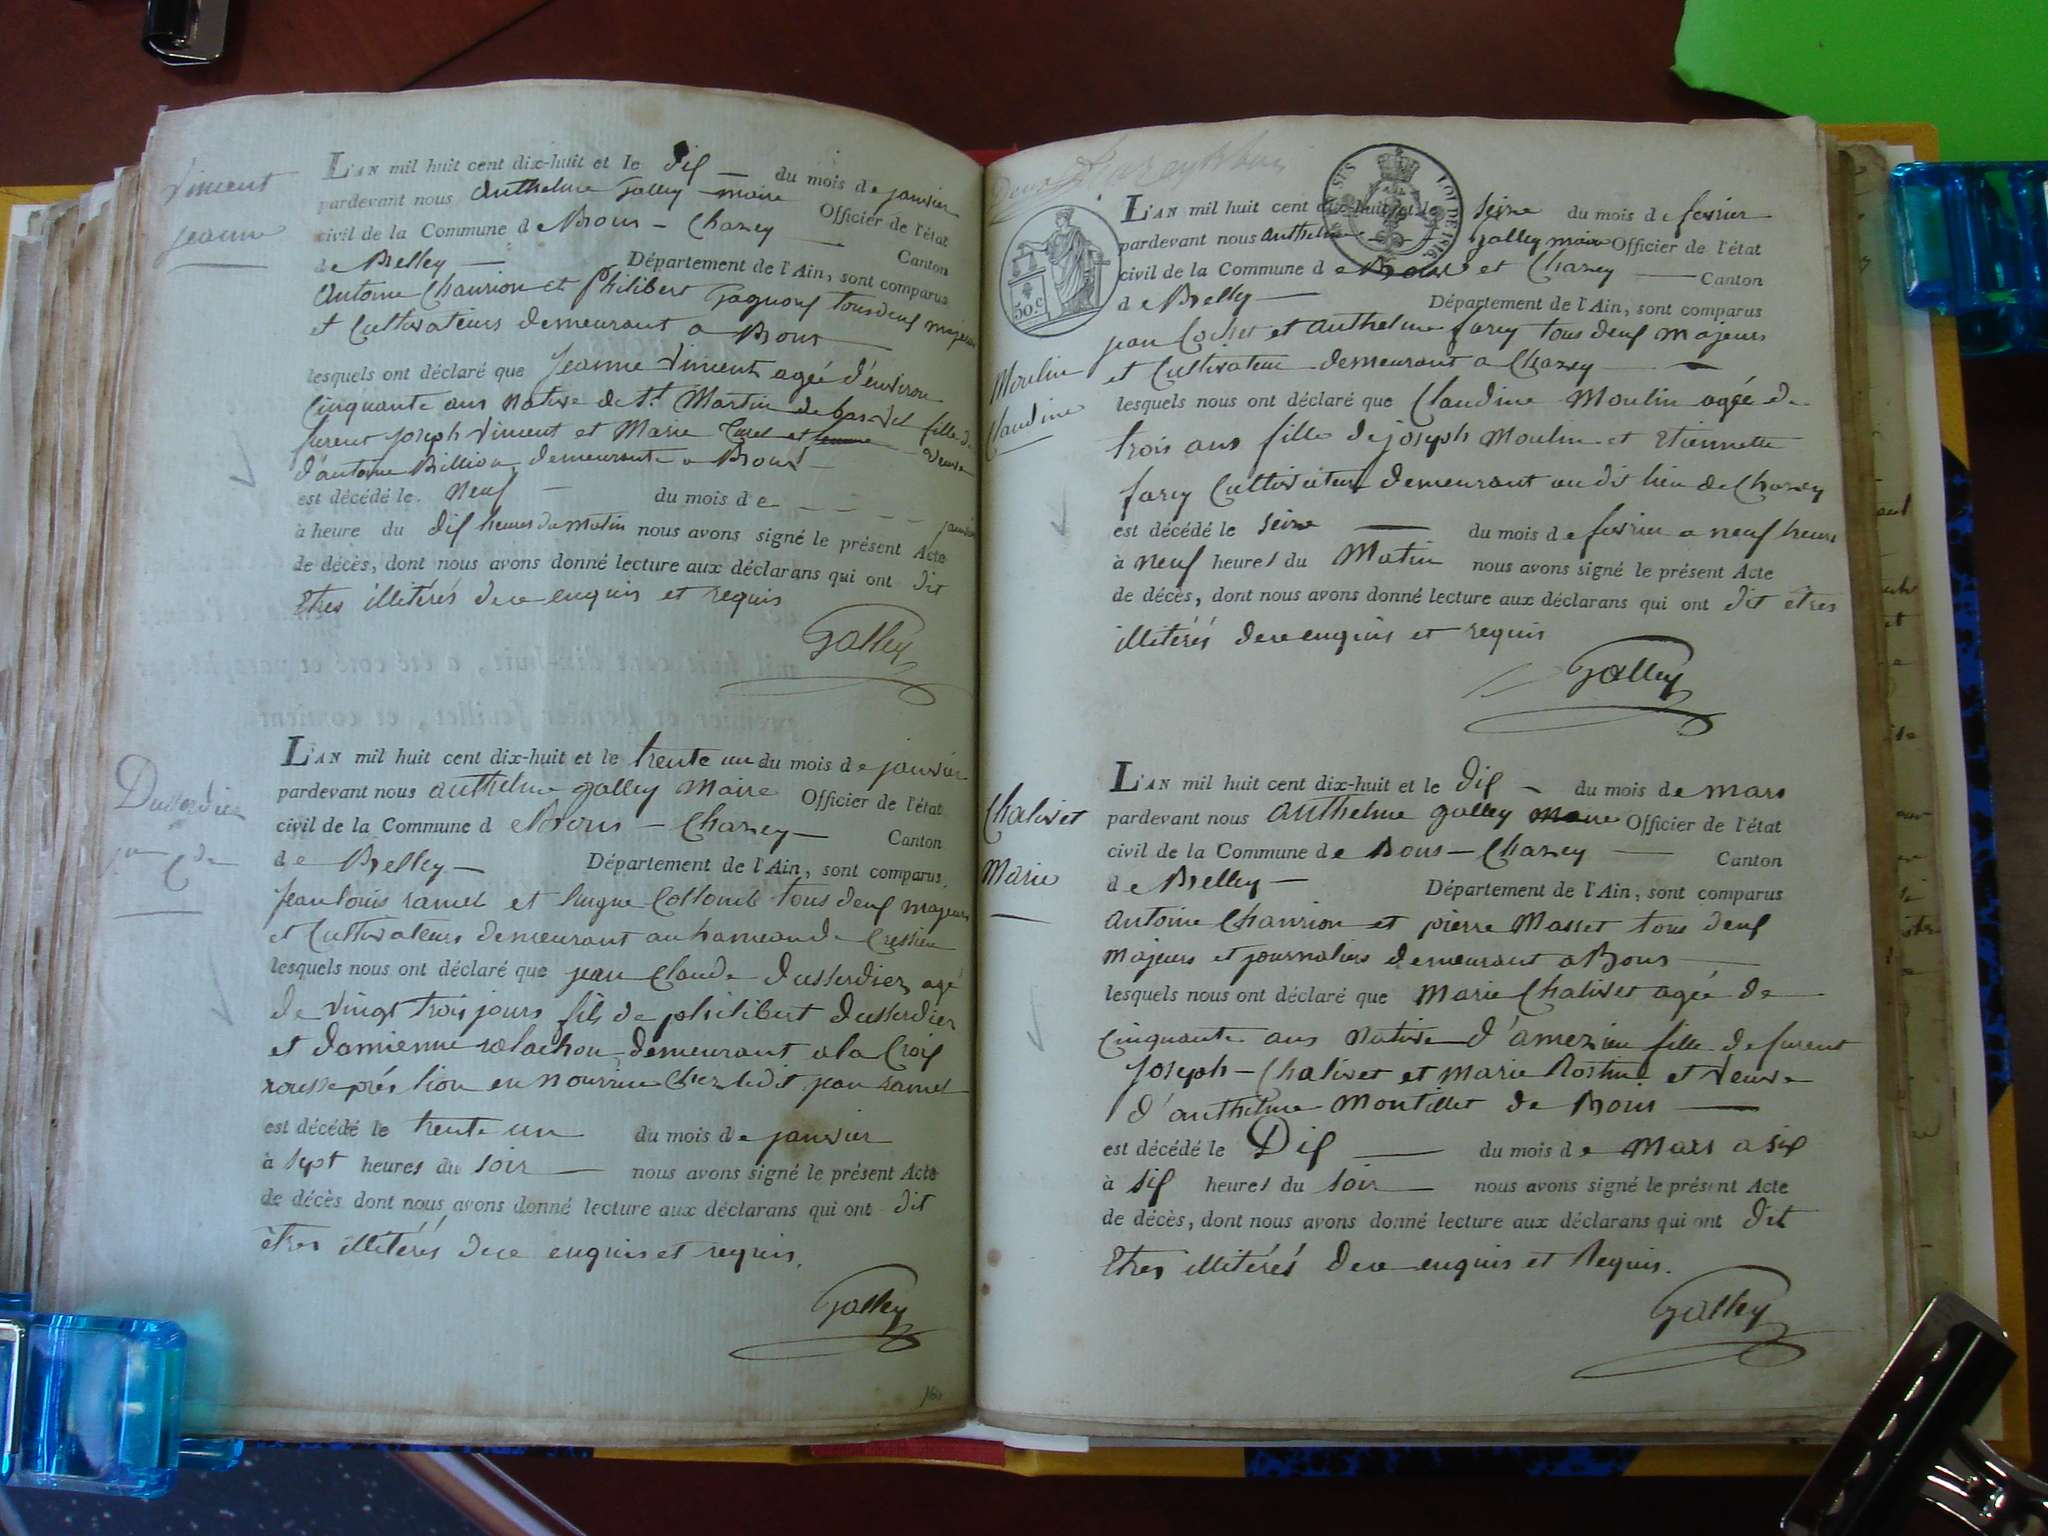 Vincent
Jeanne
L'AN mil huit cent dix-huit et le dix du mois de janvier
pardevant nous Anthelme Galley maire Officier de l'état
civil de la Commune de Bons - Chazey Canton
de Belley Département de l'Ain, sont comparus
Antoine Chanrion et Philibert Gagnon tous deux majeurs
et Cultivateurs demeurant a Bons
lesquels ont déclaré que Jeanne Vincent agée d'environ
Cinquante ans native de St Martin de fille de
furent Joseph Vincent et Marie veuve
d'antoine Billion demeurante a Bons
est décédé le neuf du mois de janvier
à heure du dix heures du matin nous avons signé le présent Acte
de décès, dont nous avons donné lecture aux déclarans qui ont dit
êtres illitérés de ce enquis et requis
Galley
Dusserdier
jean Cde
L'AN mil huit cent dix-huit et le trente un du mois de janvier
pardevant nous anthelme galley Maire Officier de l'état
civil de la Commune d eBons - Chazey - Canton
de Belley Département de l'Ain, sont comparus
Jean louis ramel et Collomb tous deux majeurs
et Cultivateurs demeurant au hameau de Cressieu
lesquels nous ont déclaré que jean Claude Dusserdier agé
de vingt trois jours fils de philibert dusserdier
et damienne demeurant a la Croix
rousse prés lion en nourrice Chez ledit jean ramel
est décédé le trente un du mois de janvier
à sept heures du soir nous avons signé le présent Acte
de décès dont nous avons donné lecture aux déclarans qui ont dit
êtres illitérés de ce enquis et requis.
Galley
50.c
LOI DE 1816
Moulin
Claudine
L'AN mil huit cent dix-huit et le seize du mois de fevrier
pardevant nous anthelme galley maire Officier de l'état
civil de la Commune de Bons et Chazey Canton
de Belley Département de l'Ain, sont comparus
jean Cochet et anthelme farcy tous deux majeurs
et Cultivateur demeurant a Chazey
lesquels nous ont déclaré que Claudine Moulin agée de
trois ans fille de joseph Moulin et Etiennette
farcy Cultivateur demeurant au dit lieu de Chazey
est décédé le seize du mois de fevrier a neuf heure
à neuf heures du Matin nous avons signé le présent Acte
de décès, dont nous avons donné lecture aux déclarans qui ont dit êtres
illitérés de ce enquis et requis
Galley
Chalivet
Marie
L'AN mil huit cent dix-huit et le dix du mois de mars
pardevant nous anthelme galley maire Officier de l'état
civil de la Commune de Bons - Chazey Canton
de Belley Département de l'Ain, sont comparus
antoine Chanrion et pierre Masset tous deux
majeurs et journaliers demeurant a Bons
lesquels nous ont déclaré que Marie Chalivet agée de
Cinquante ans native d'amezieu fille de furent
Joseph - Chalivet et marie et Veuve
d'anthelme Montillet de Bons
est décédé le Dix du mois de Mars a six
à six heures du soir nous avons signé le présent Acte
de décès, dont nous avons donné lecture aux déclarans qui ont dit
Etres illitérés de ce enquis et Requis.
Galley